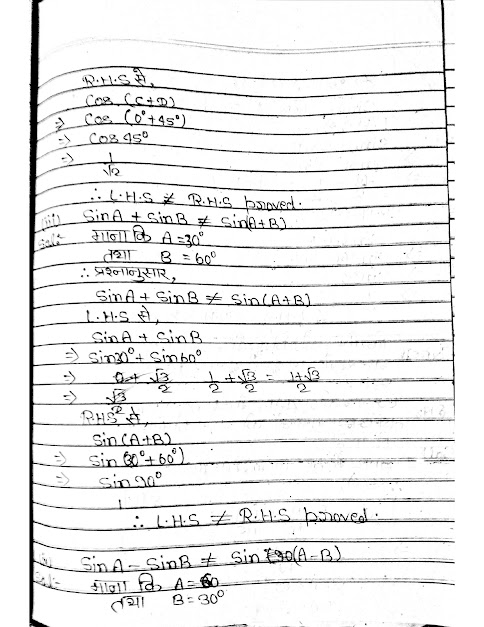 R.H.S से,
Cos (C+D)
⇒ Cos (0°+45°)
⇒ Cos 45°
⇒ 1/√2
∴ L.H.S ≠ R.H.S proved.
(iii) SinA + SinB ≠ Sin(A+B)
Sol:- माना कि A = 30°
तथा B = 60°
∴ प्रश्नानुसार,
SinA + SinB ≠ Sin(A+B)
L.H.S से,
SinA + SinB
⇒ Sin30° + Sin60°
⇒ 0 + √3/2 1/2 + √3/2 = 1+√3/2
⇒ √3/2
RHS से,
Sin(A+B)
⇒ Sin(30°+60°)
⇒ Sin 90°
1
∴ L.H.S ≠ R.H.S proved.
SinA - SinB ≠ Sin (A-B)
Sol:- माना कि A = 60
तथा B = 30°